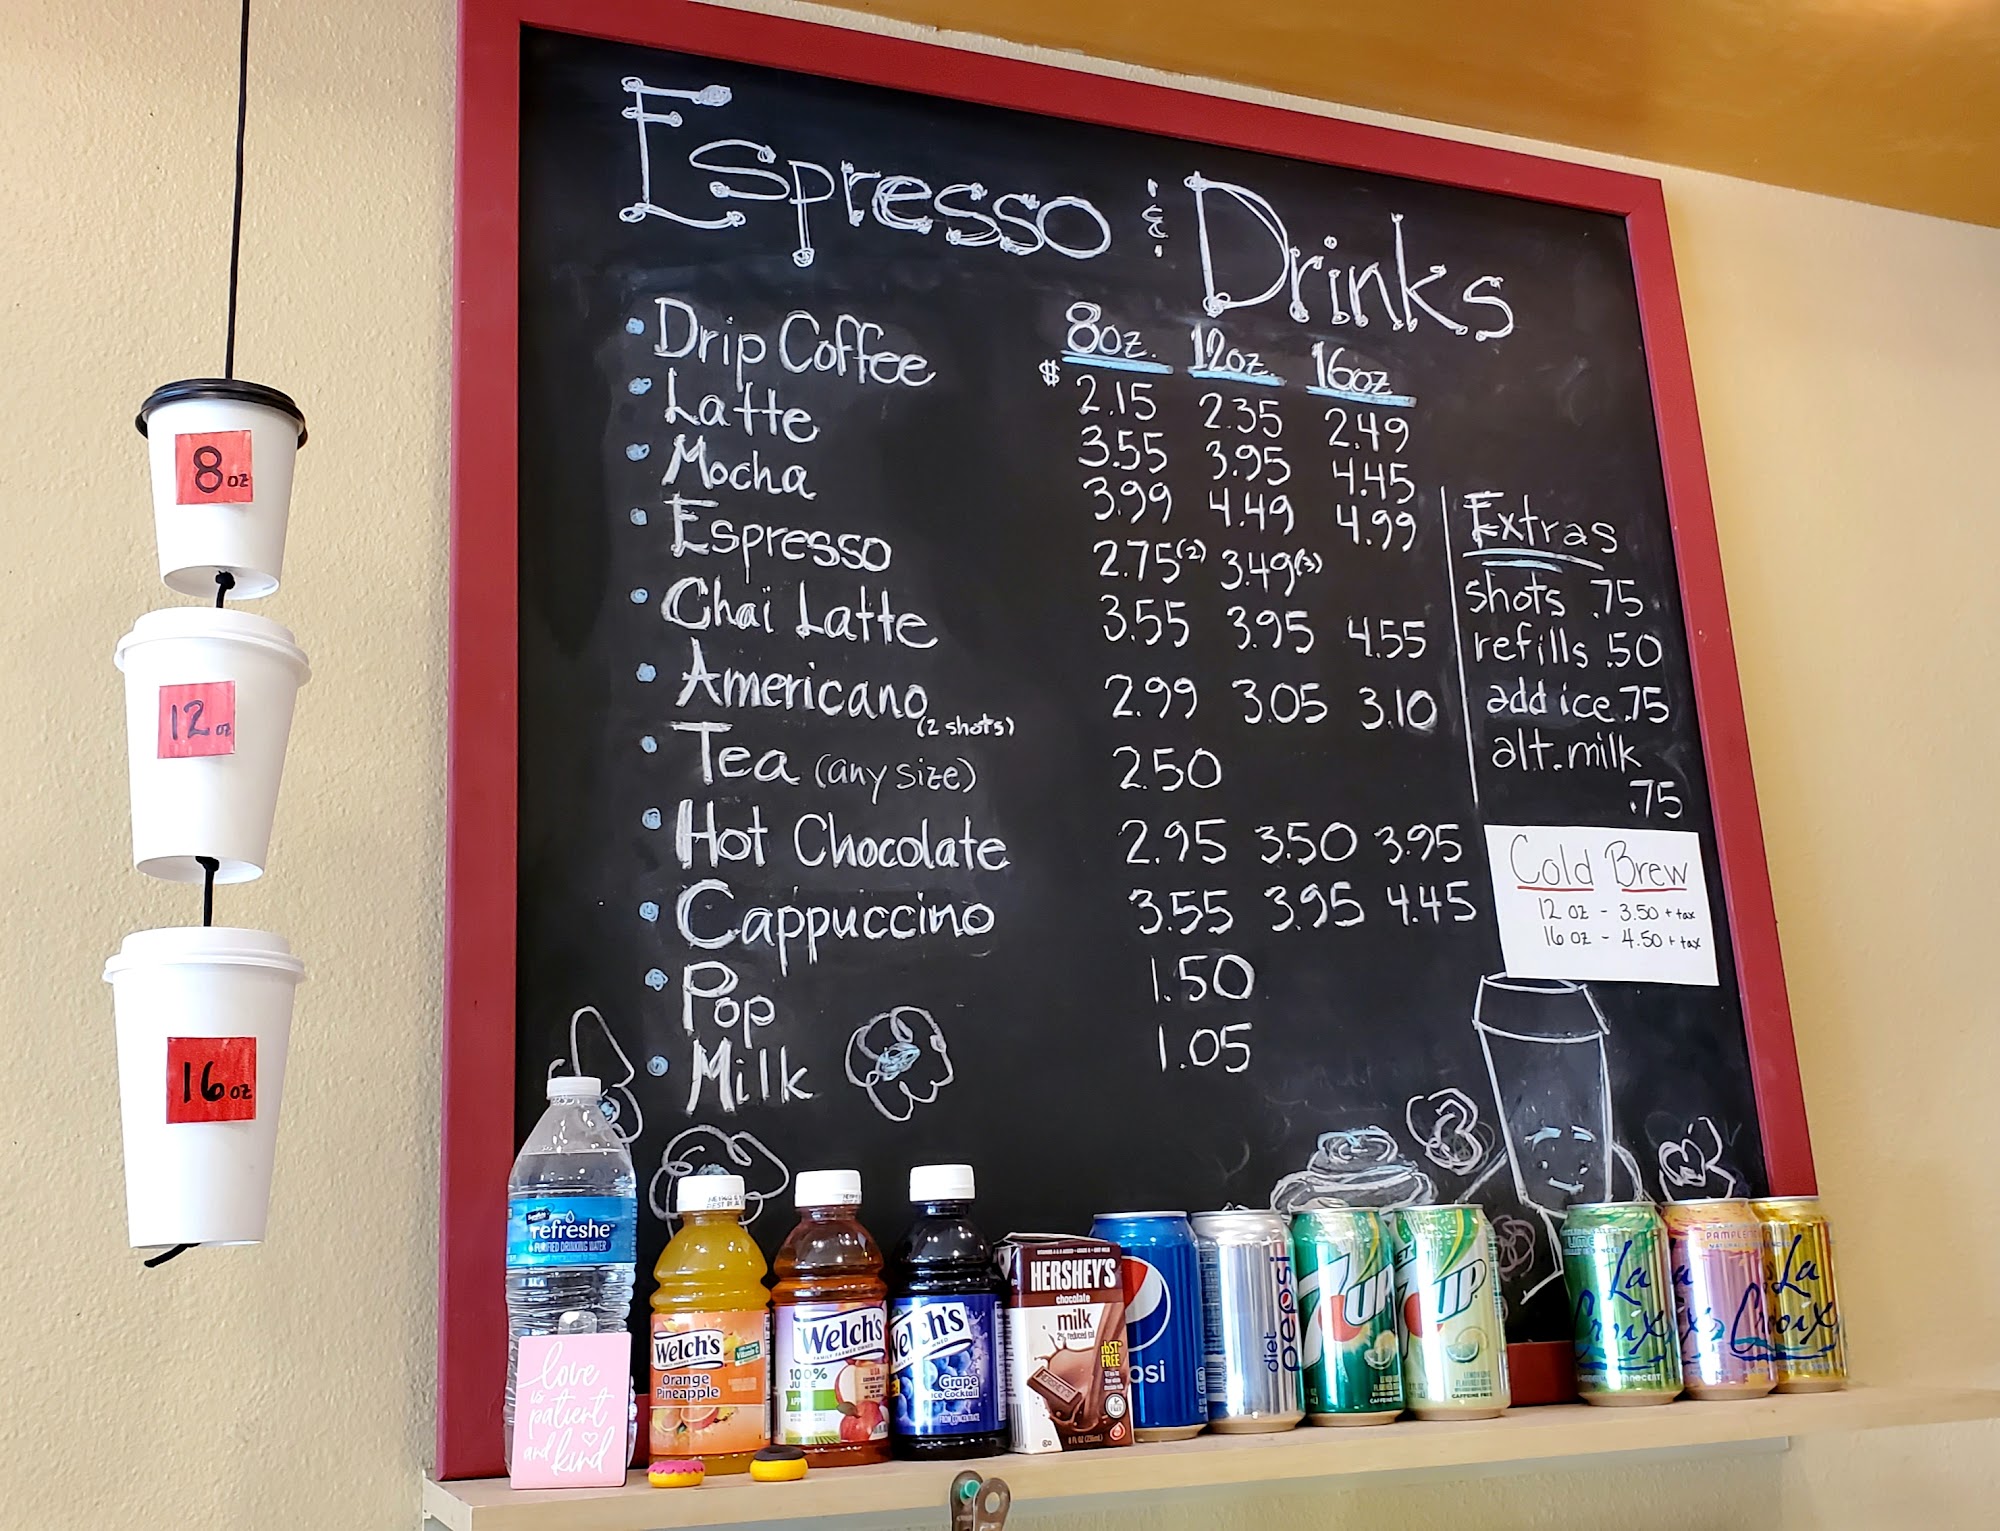 Espresso & Drinks
8oz. 12oz. 16oz
• Drip Coffee $ 2.15 2.35 2.49
• Latte 3.55 3.95 4.45
• Mocha 3.99 4.49 4.99
• Espresso 2.75(2) 3.49(3)
• Chai Latte 3.55 3.95 4.55
• Americano (2 shots) 2.99 3.05 3.10
• Tea (any size) 2.50
• Hot Chocolate 2.95 3.50 3.95
• Cappuccino 3.55 3.95 4.45
• Pop 1.50
• Milk 1.05
Extras
shots .75
refills .50
add ice .75
alt. milk
.75
Cold Brew
12 oz - 3.50 + tax
16 oz - 4.50 + tax
8 oz
12 oz
16 oz
refreshe
PURIFIED DRINKING WATER
love
is
patient
and
kind
Welch's
Orange
Pineapple
Welch's
100%
Welch's
Grape
FROM CONCENTRATE
HERSHEY'S
chocolate
milk
2% reduced fat
rbST
FREE
diet pepsi
7UP
CAFFEINE FREE
CAFFEINE FREE
La
Croix
La
Croix